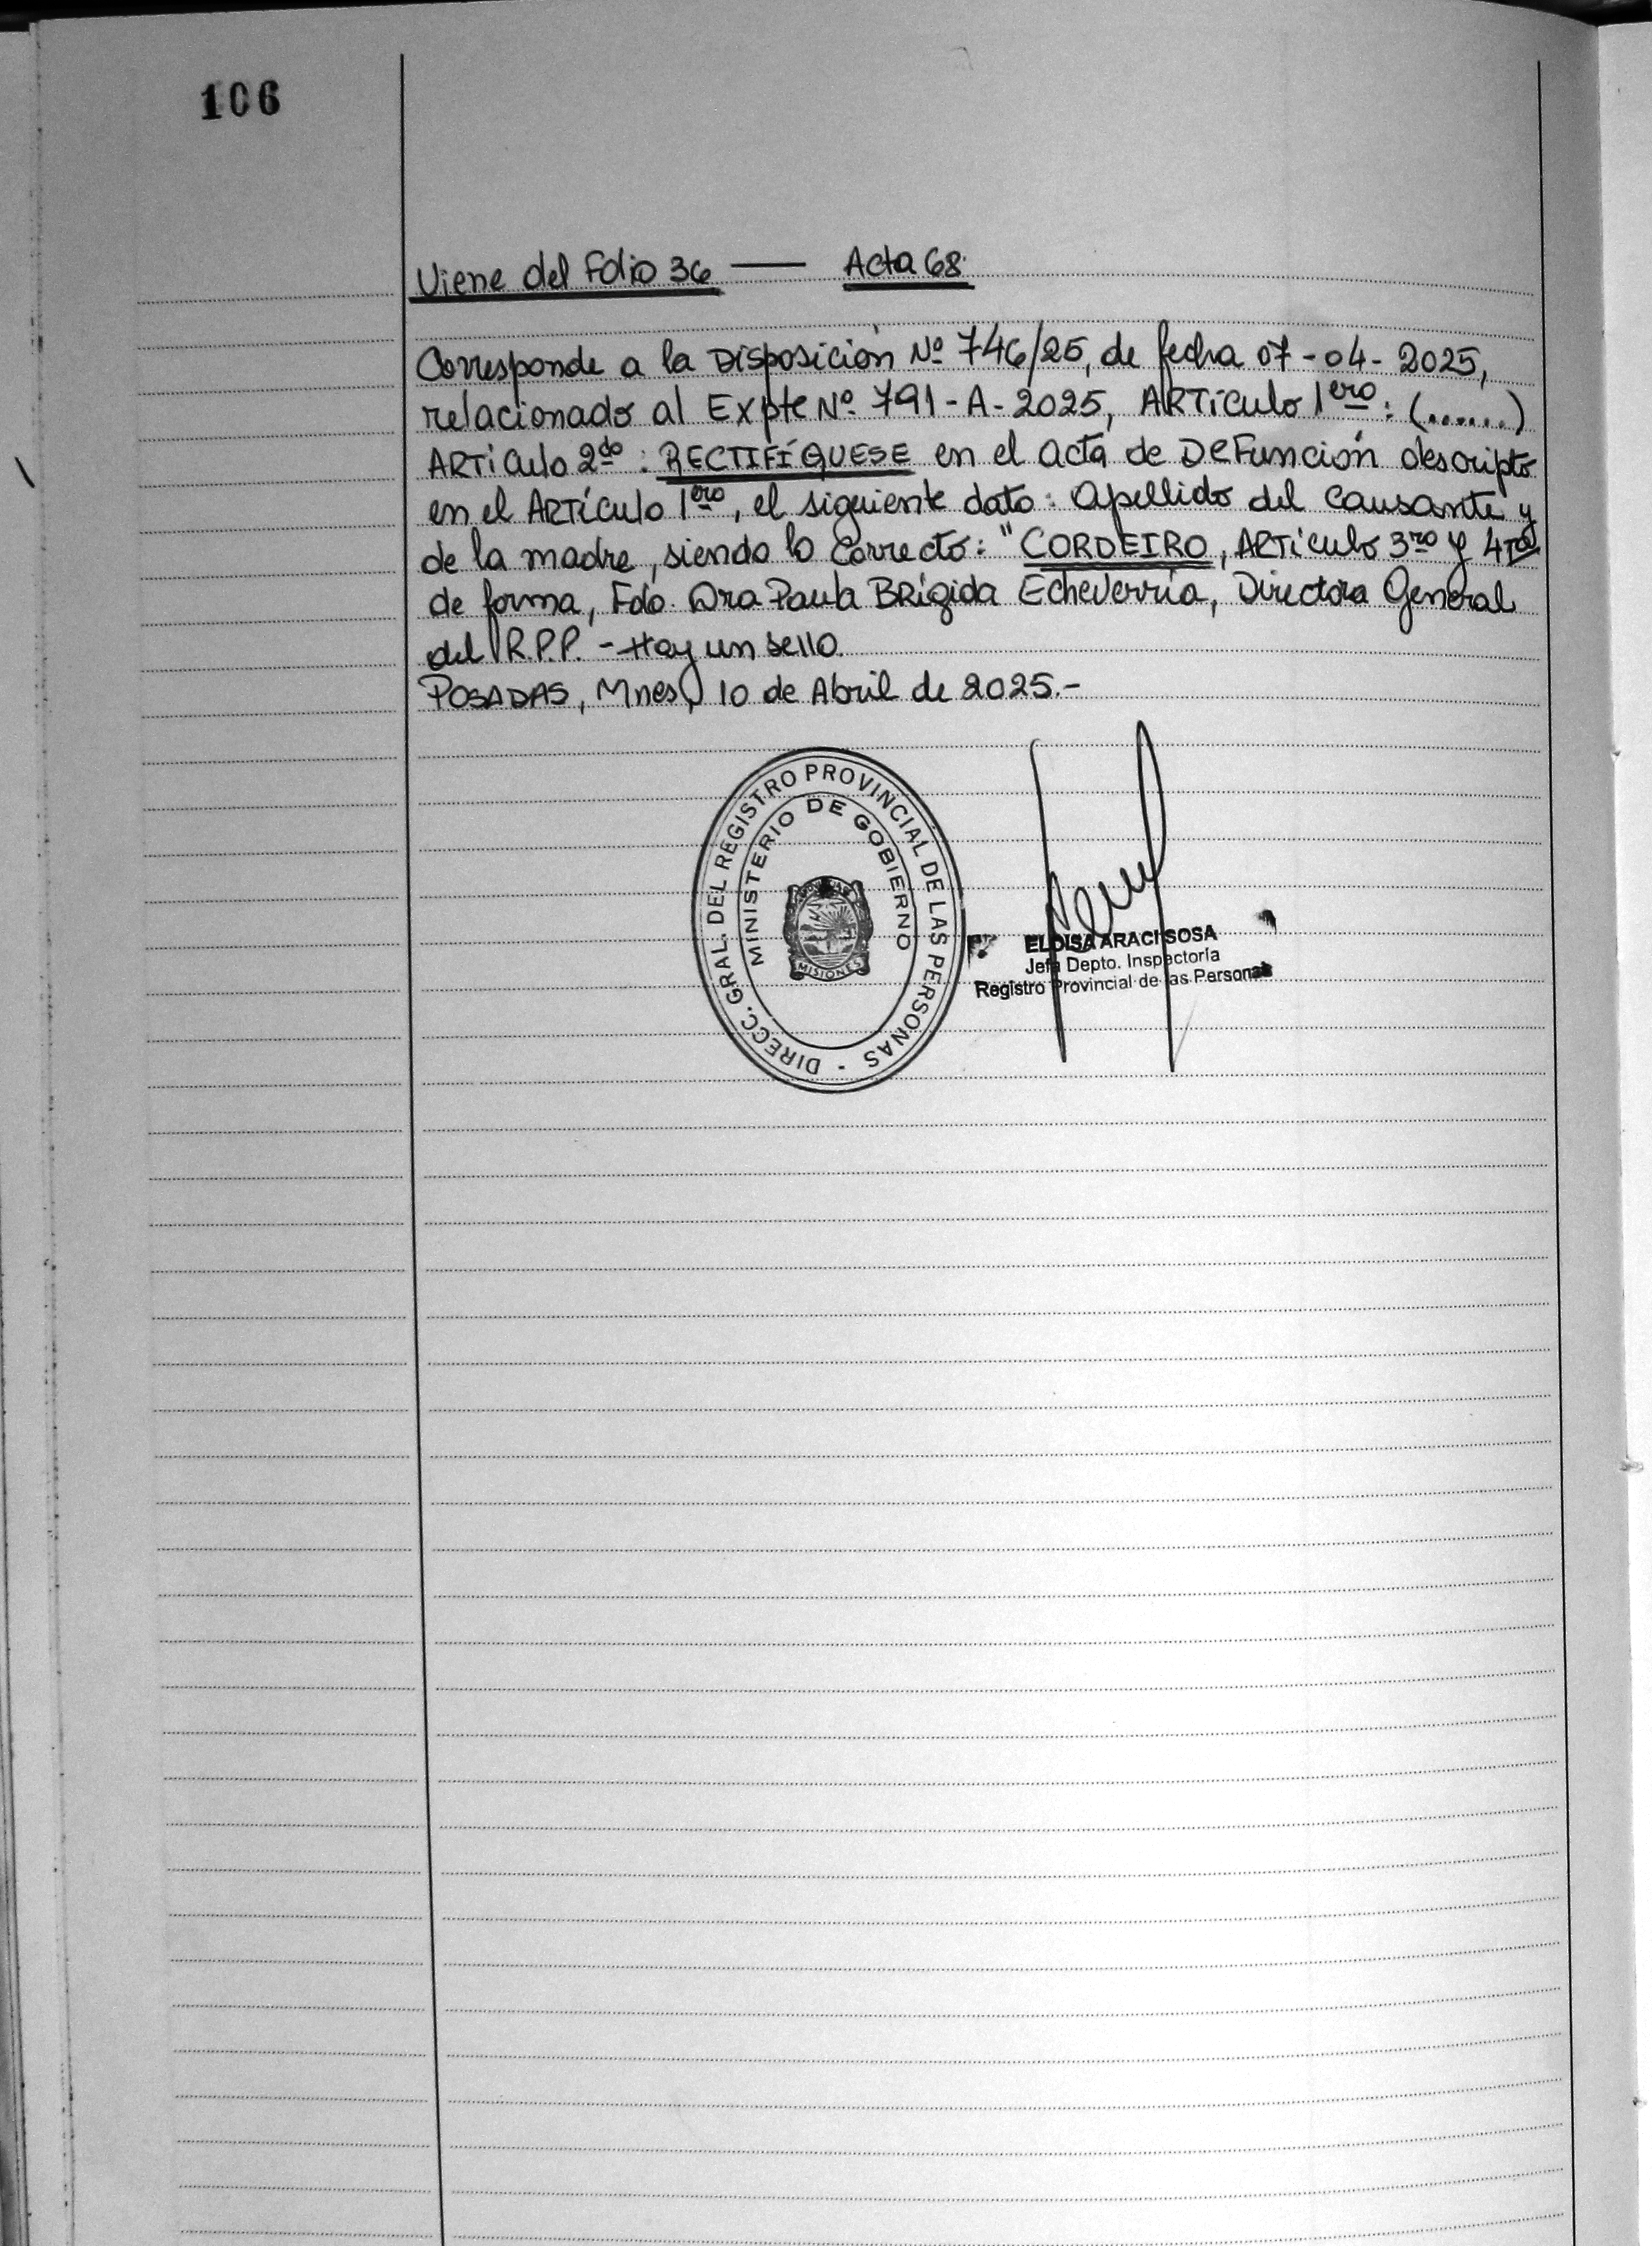 106
Viene del Folio 36 — Acta 68
Corresponde a la Disposición Nº 746/25, de fecha 07-04-2025,
relacionado al Expte Nº 791-A-2025, ARTículo 1ero: (......)
ARTículo 2do: RECTIFÍQUESE en el acta de DeFunción descripto
en el ARTículo 1ero, el siguiente dato: apellido del causante y
de la madre, siendo lo correcto: "CORDEIRO, ARTículo 3ro y 4to
de forma, Fdo. Dra Paula BRígida Echeverría, Directora General
del R.P.P. - Hay un sello.
POSADAS, Mnes, 10 de Abril de 2025.-
DIRECC. GRAL. DEL REGISTRO PROVINCIAL DE LAS PERSONAS -
MINISTERIO DE GOBIERNO
MISIONES
ELOISA ARACI SOSA
Jefa Depto. Inspectoría
Registro Provincial de las Personas